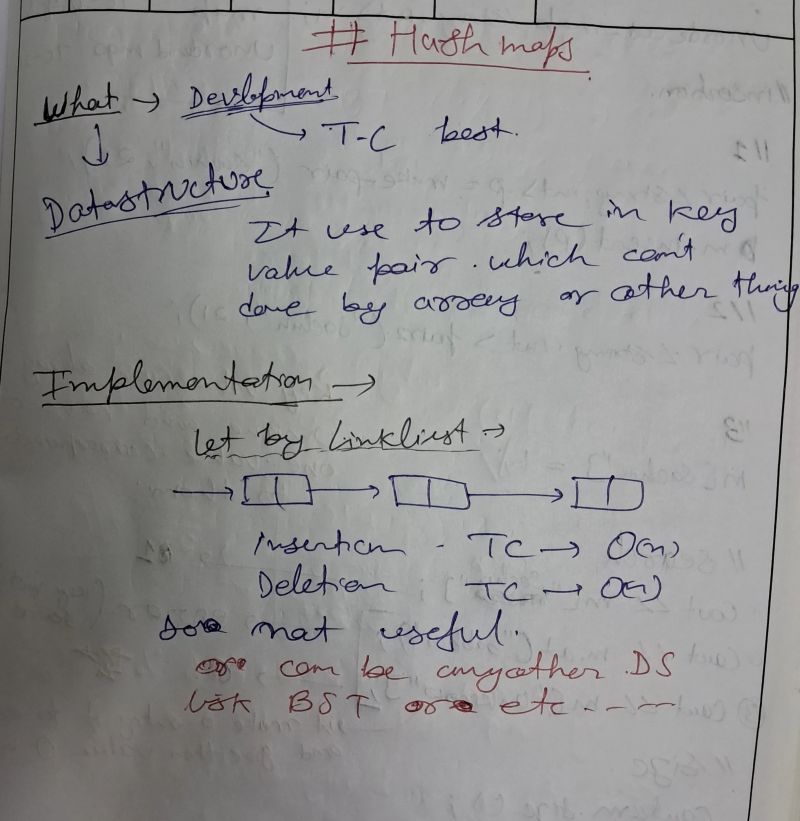 # Hash maps
What → Development
→ T-C best.
Datastructure
It use to store in key
value pair. which can't
done by array or other thing
Implementation →
Let by Linklist →
Insertion - TC → O(n)
Deletion TC → O(n)
so not useful.
or can be anyother DS
lik BST or etc - - -